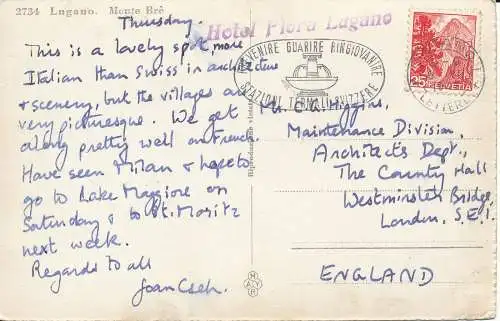 2734 Lugano. Monte Brè
Hotel Flora Lugano
Thursday.
This is a lovely spot, more
Italian than Swiss in architecture
& scenery, but the villages are
very picturesque. We get
along pretty well on French.
Have seen Milan & hope to
go to Lake Maggiore on
Saturday & to St. Moritz
next week.
Regards to all
Joan
PREVENIRE GUARIRE RINGIOVANIRE
STAZIONI TERMALI SVIZZERE
25
HELVETIA
Mr. C. A. Higgins,
Maintenance Division,
Architects Dept.,
The County Hall
Westminster Bridge,
London, S.E.1.
ENGLAND